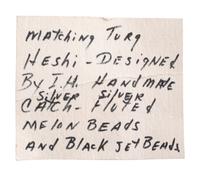 Matching Turq
Heshi - Designed
By I.H. Handmade
Silver Silver
Catch - Fluted
Melon Beads
And Black Jet Beads